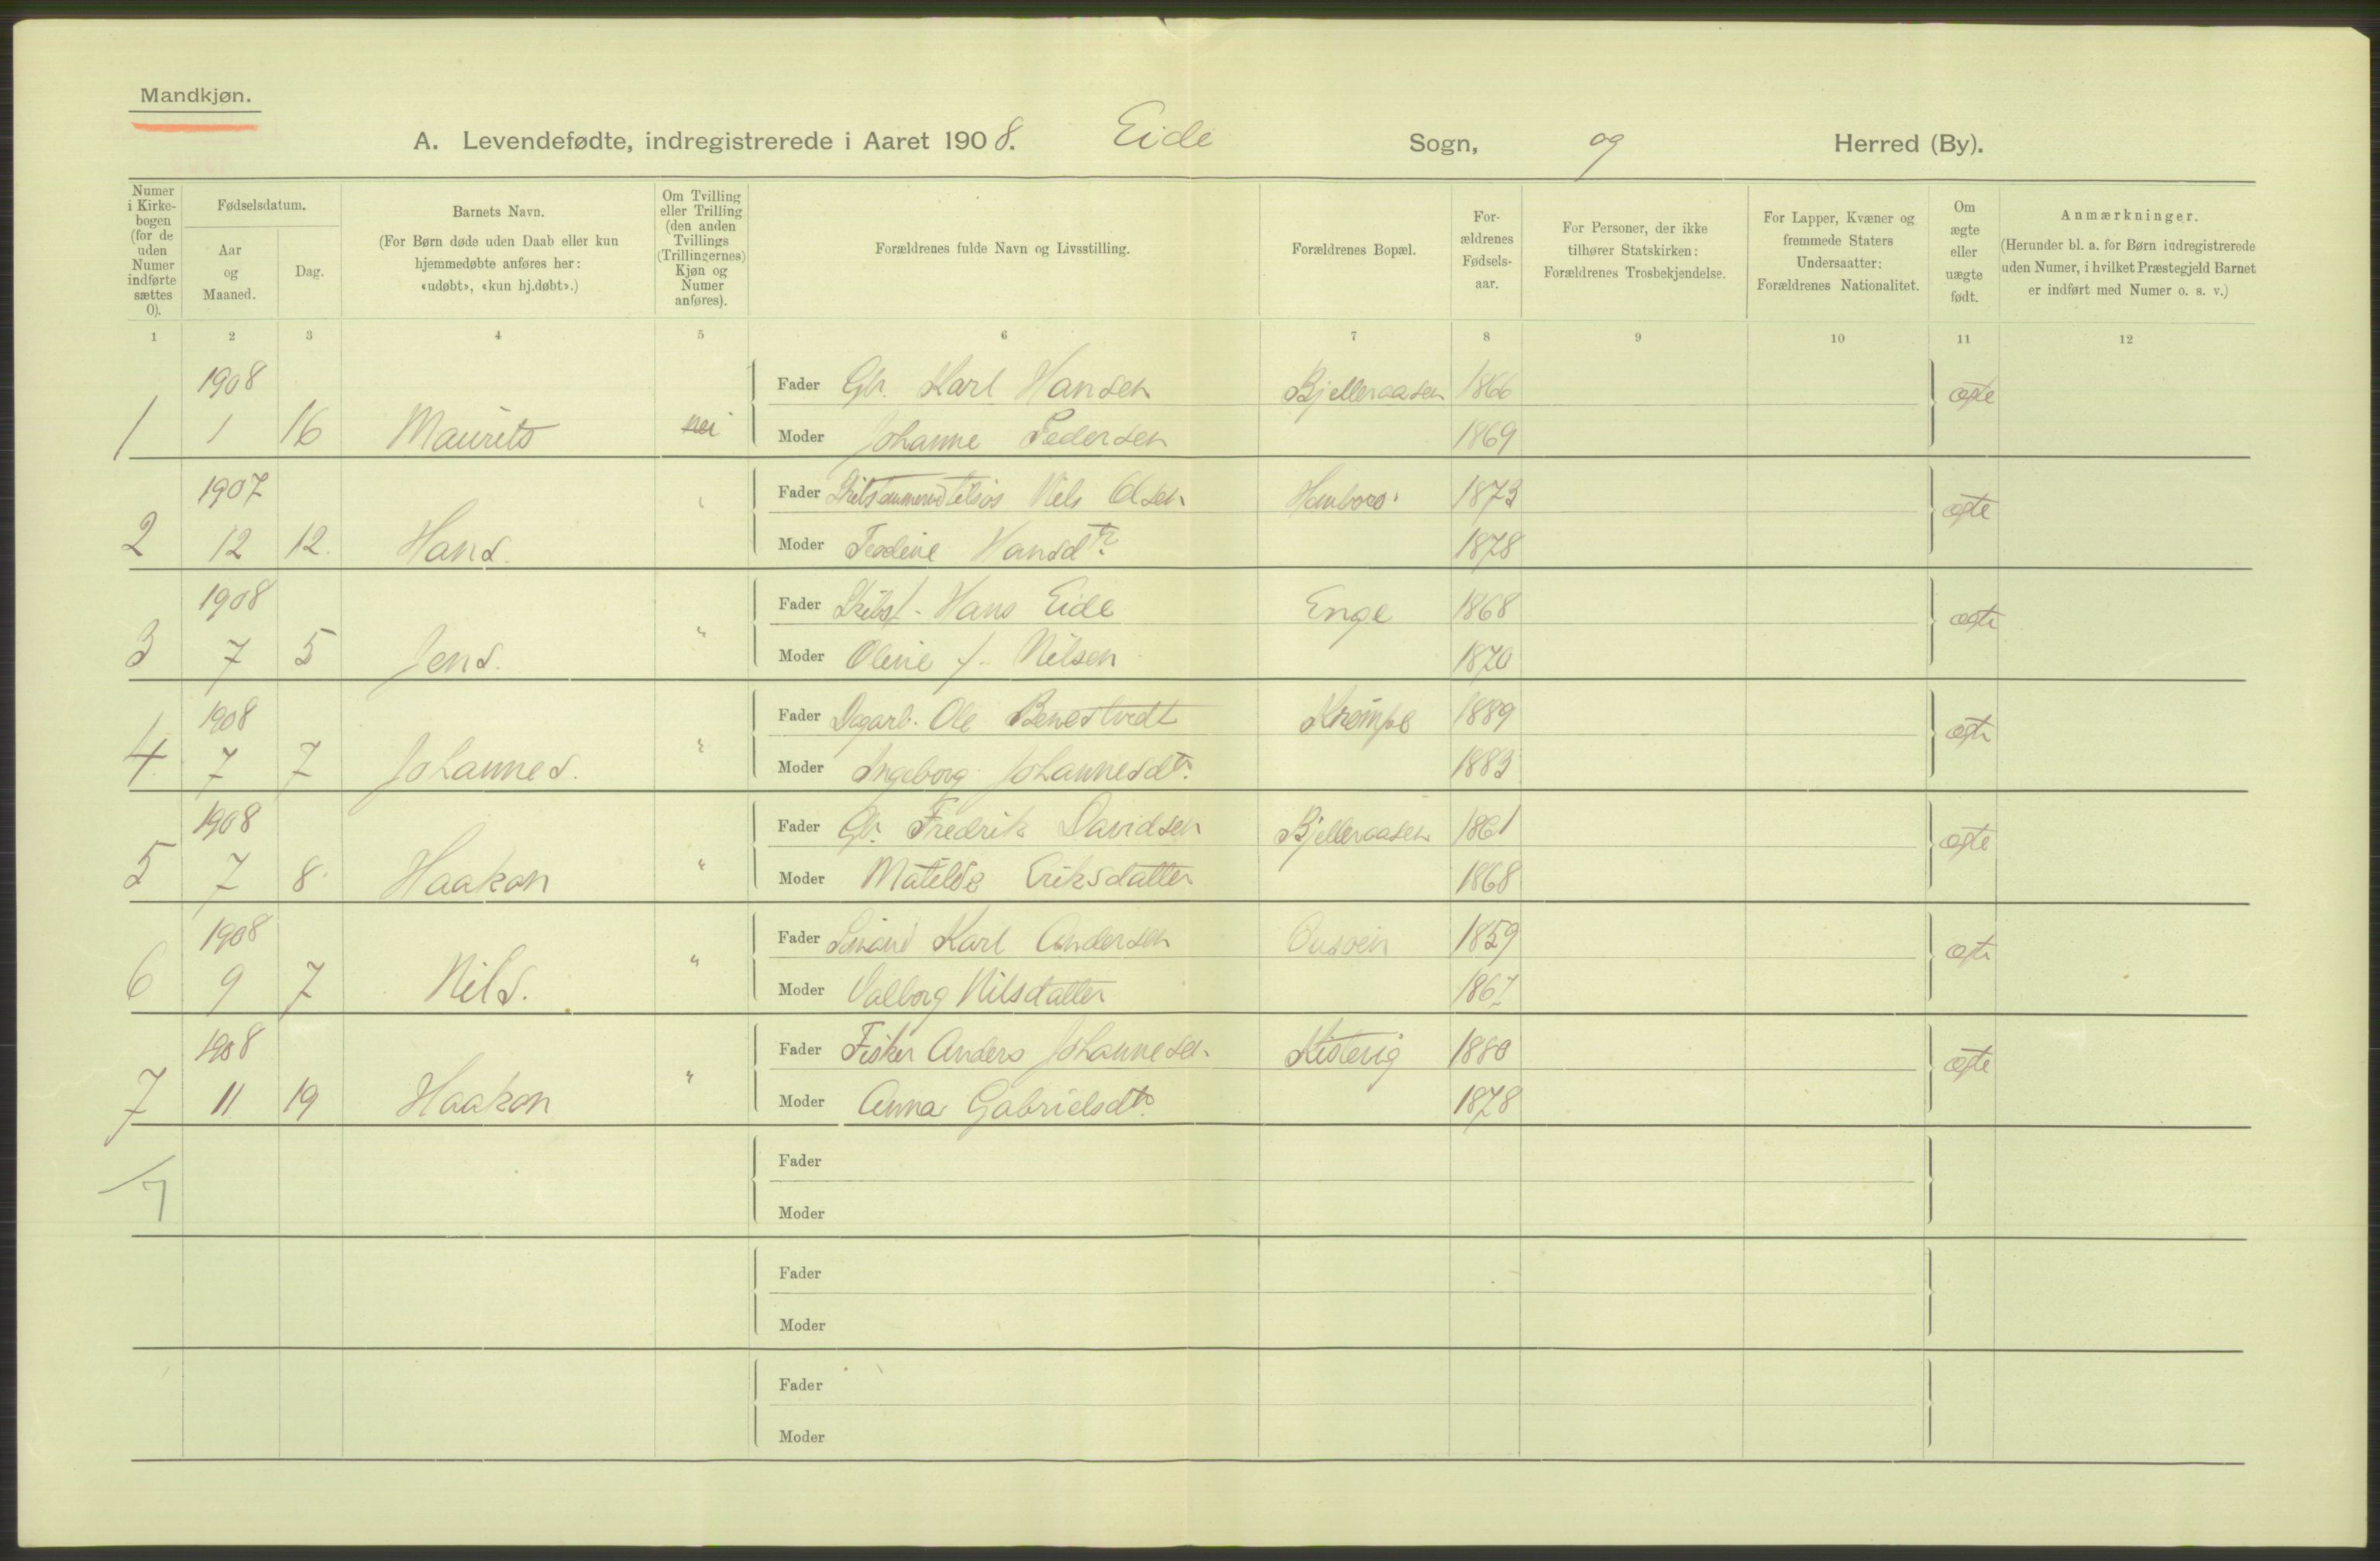 Mandkjøn.
A. Levendefødte, indregistrerede i Aaret 1908. Eide Sogn, og Herred (By).
Numer i Kirkebogen (for de uden Numer indførte sættes 0).
Fødselsdatum.
Aar og Maaned.
Dag.
Barnets Navn.
(For Børn døde uden Daab eller kun hjemmedøbte anføres her: «udøbt», «kun hj.døbt».)
Om Tvilling eller Trilling (den anden Tvillings (Trillingernes) Kjøn og Numer anføres).
Forældrenes fulde Navn og Livsstilling.
Forældrenes Bopæl.
Forældrenes Fødselsaar.
For Personer, der ikke tilhører Statskirken: Forældrenes Trosbekjendelse.
For Lapper, Kvæner og fremmede Staters Undersaatter: Forældrenes Nationalitet.
Om ægte eller uægte født.
Anmærkninger.
(Herunder bl. a. for Børn indregistrerede uden Numer, i hvilket Præstegjeld Barnet er indført med Numer o. s. v.)
1 2 3 4 5 6 7 8 9 10 11 12
1908 Fader Gbr. Karl Hansen Bjelleraasen 1866 ægte
1 1 16 Maurits nei Moder Johanne Pedersen 1869
1907 Fader Nels Olsen 1873 ægte
2 12 12. Hans. " Moder Hansdtr. 1878
1908 Fader Hans Eide Enge 1868 ægte
3 7 5 Jens. " Moder Oline f. Nilsen 1870
1908 Fader Dagarb. Ole Benestvedt 1889 ægte
4 7 7 Johannes. " Moder Ingeborg Johannesdtr. 1883
1908 Fader Gbr. Fredrik Davidsen Bjelleraasen 1861 ægte
5 7 8 Haakon " Moder Matilde Eriksdatter 1868
1908 Fader Karl Andersen 1859 ægte
6 9 7 Nils. " Moder Valborg Nilsdatter 1867
1908 Fader Fisker Anders Johannesen 1880 ægte
7 11 19 Haakon " Moder Anna Gabrielsdtr. 1878
7 Fader
Moder
Fader
Moder
Fader
Moder